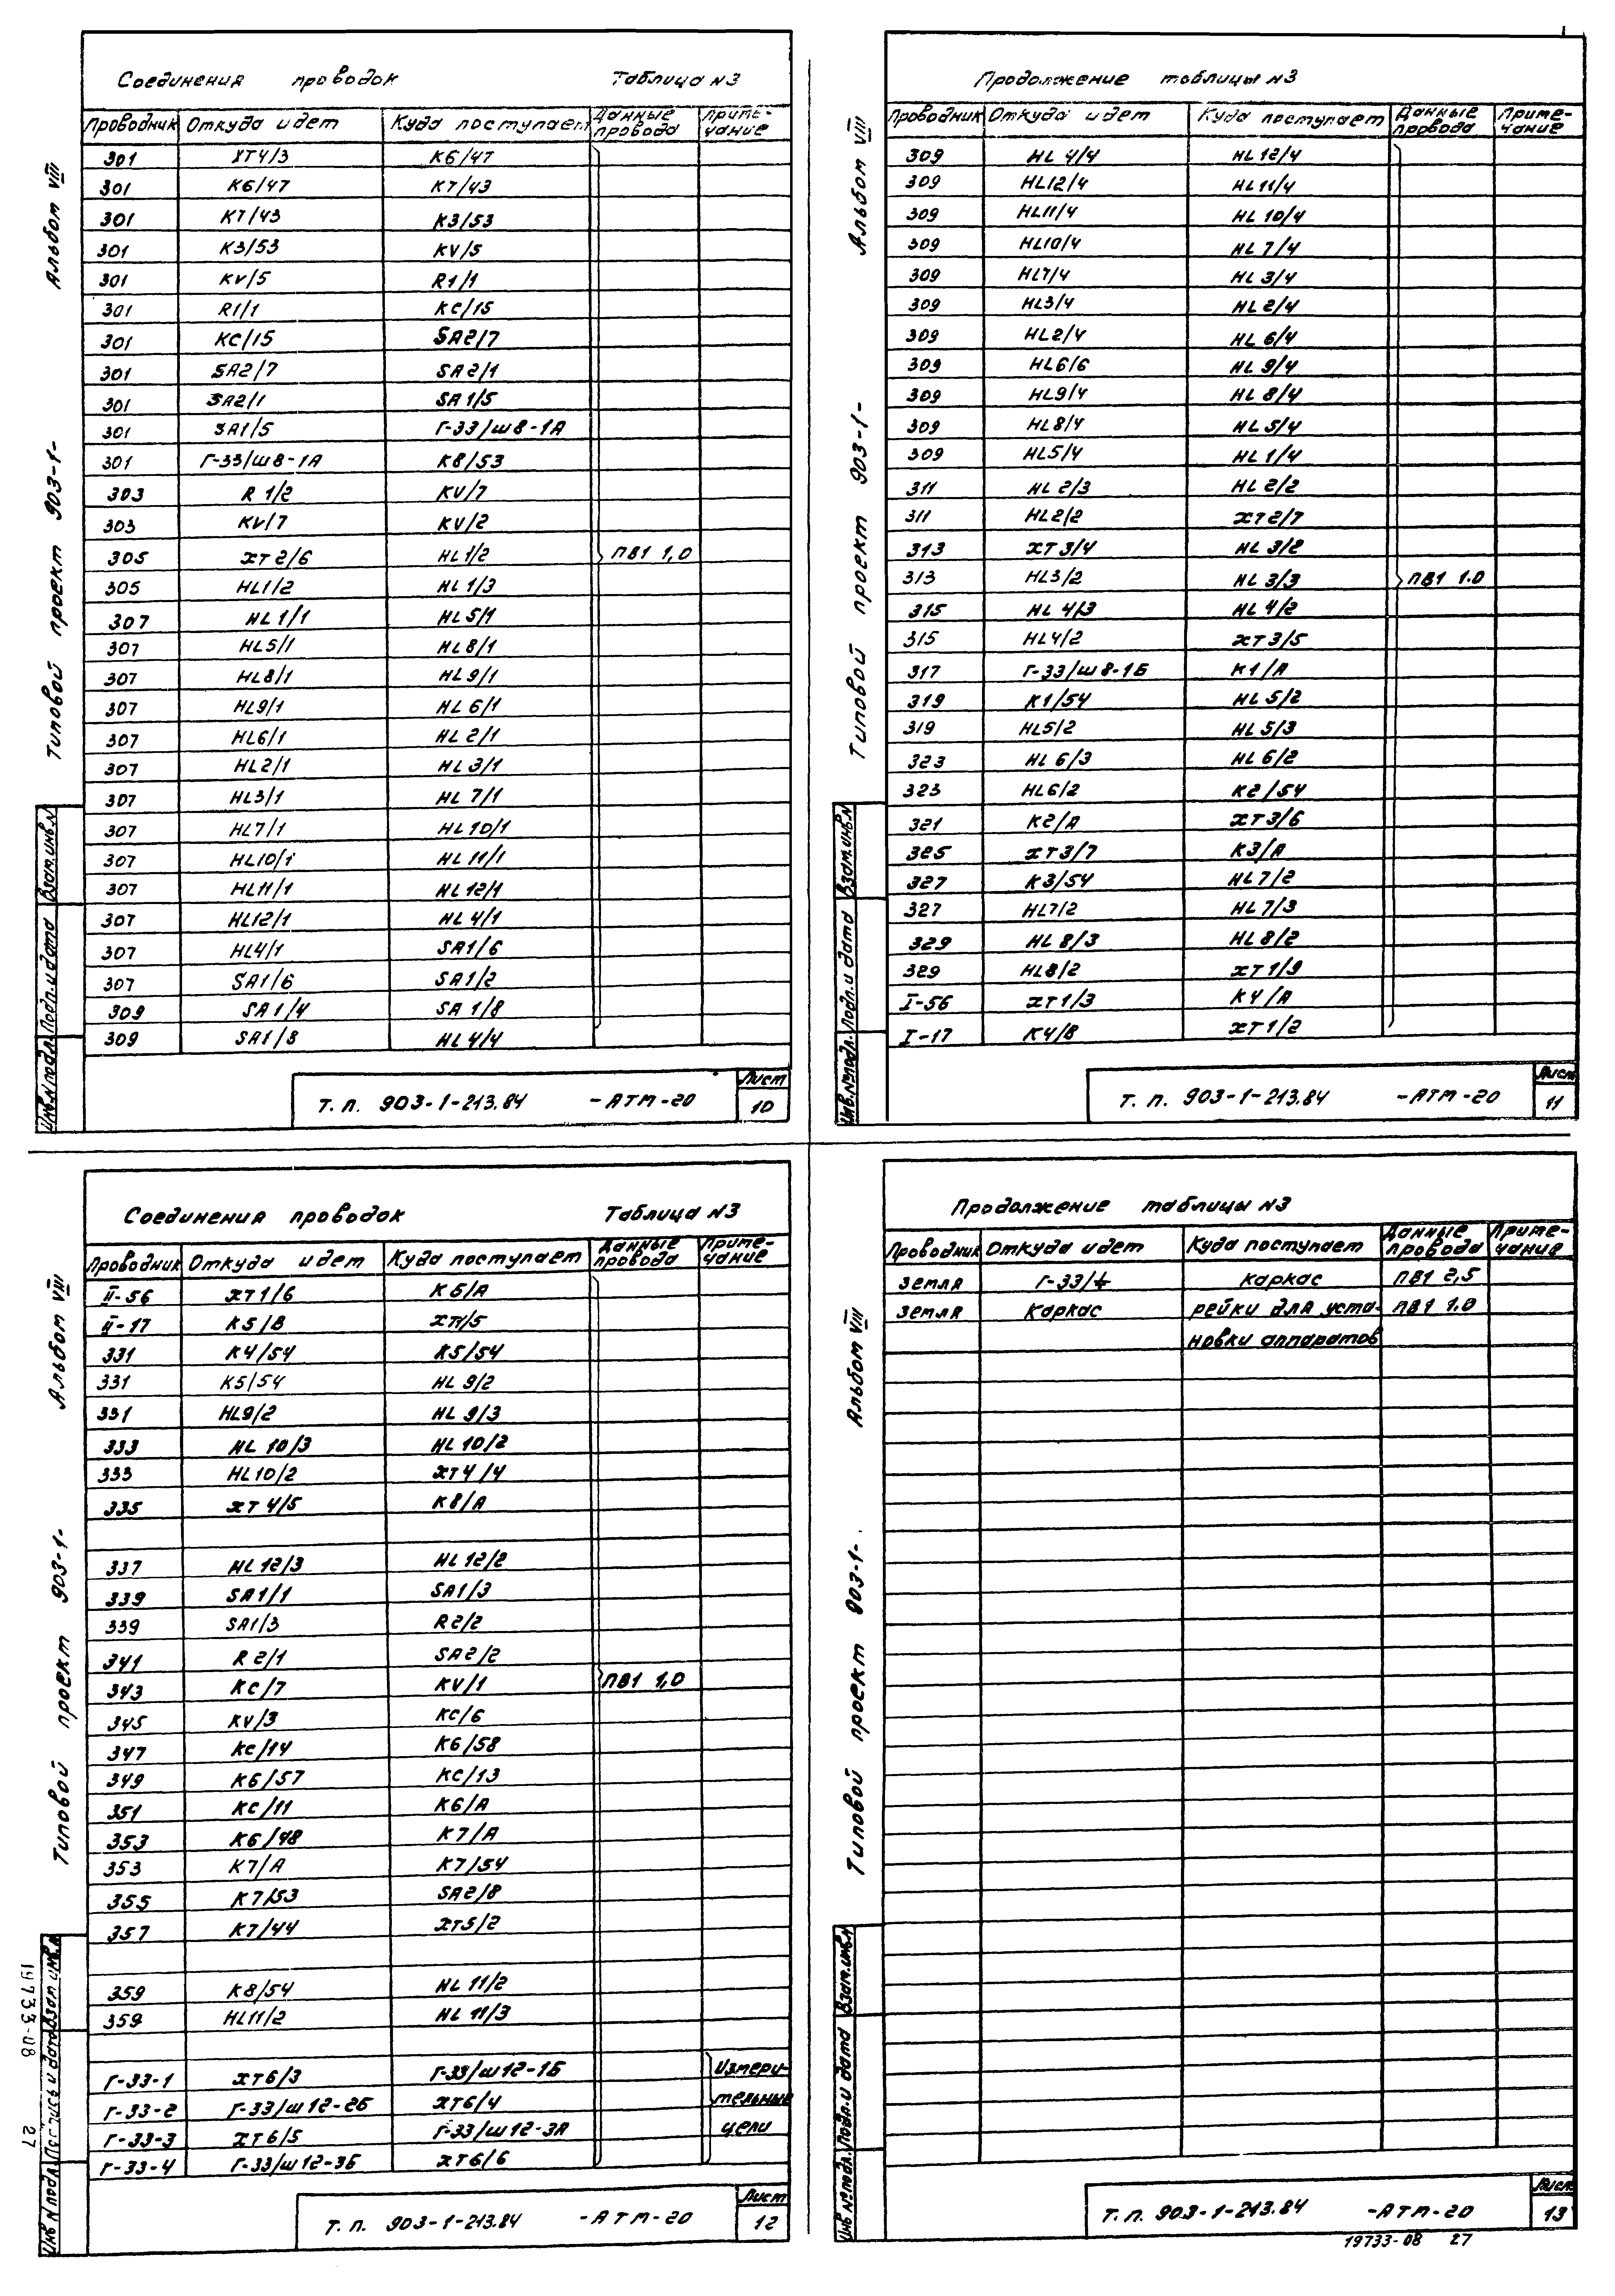 Соединения проводок Таблица N3
Проводник Откуда идет Куда поступает Данные провода Примечание
301 ХТ4/3 К6/47
301 К6/47 К7/43
301 К7/43 К3/53
301 К3/53 KV/5
301 KV/5 R1/1
301 R1/1 КС/15
301 КС/15 SA2/7
301 SA2/7 SA2/1
301 SA2/1 SA1/5
301 SA1/5 Г-33/Ш8-1А
301 Г-33/Ш8-1А К8/53
303 R1/2 KV/7
303 KV/7 KV/2
305 ХТ2/6 HL1/2 ПВ1 1,0
305 HL1/2 HL1/3
307 HL1/1 HL5/1
307 HL5/1 HL8/1
307 HL8/1 HL9/1
307 HL9/1 HL6/1
307 HL6/1 HL2/1
307 HL2/1 HL3/1
307 HL3/1 HL7/1
307 HL7/1 HL10/1
307 HL10/1 HL11/1
307 HL11/1 HL12/1
307 HL12/1 HL4/1
307 HL4/1 SA1/6
307 SA1/6 SA1/2
309 SA1/4 SA1/8
309 SA1/8 HL4/4
Т.п. 903-1-213.84 -АТМ-20 Лист 10
Альбом VIII
Типовой проект 903-1-
Инв.N подл. Подп. и дата Взам.инв.N
Продолжение таблицы N3
Проводник Откуда идет Куда поступает Данные провода Примечание
309 HL4/4 HL12/4
309 HL12/4 HL11/4
309 HL11/4 HL10/4
309 HL10/4 HL7/4
309 HL7/4 HL3/4
309 HL3/4 HL2/4
309 HL2/4 HL6/4
309 HL6/6 HL9/4
309 HL9/4 HL8/4
309 HL8/4 HL5/4
309 HL5/4 HL1/4
311 HL2/3 HL2/2
311 HL2/2 ХТ2/7
313 ХТ3/4 HL3/2
313 HL3/2 HL3/3 ПВ1 1.0
315 HL4/3 HL4/2
315 HL4/2 ХТ3/5
317 Г-33/Ш8-1Б К1/А
319 К1/54 HL5/2
319 HL5/2 HL5/3
323 HL6/3 HL6/2
323 HL6/2 К2/54
321 К2/А ХТ3/6
325 ХТ3/7 К3/А
327 К3/54 HL7/2
327 HL7/2 HL7/3
329 HL8/3 HL8/2
329 HL8/2 ХТ1/9
I-56 ХТ1/3 К4/А
I-17 К4/В ХТ1/2
Т.п. 903-1-213.84 -АТМ-20 Лист 11
Альбом VIII
Типовой проект 903-1-
Инв.№подл. Подп. и дата Взам.инв.N
Соединения проводок Таблица N3
Проводник Откуда идет Куда поступает Данные провода Примечание
II-56 ХТ1/6 К5/А
II-17 К5/В ХТ1/5
331 К4/54 К5/54
331 К5/54 HL9/2
331 HL9/2 HL9/3
333 HL10/3 HL10/2
333 HL10/2 ХТ4/4
335 ХТ4/5 К8/А
337 HL12/3 HL12/2
339 SA1/1 SA1/3
339 SA1/3 R2/2
341 R2/1 SA2/2
343 КС/7 KV/1 ПВ1 1,0
345 KV/3 КС/6
347 КС/14 К6/58
349 К6/57 КС/13
351 КС/11 К6/А
353 К6/48 К7/А
353 К7/А К7/54
355 К7/53 SA2/8
357 К7/44 ХТ5/2
359 К8/54 HL11/2
359 HL11/2 HL11/3
Г-33-1 ХТ6/3 Г-33/Ш12-1Б Измери-
Г-33-2 Г-33/Ш12-2Б ХТ6/4 тельные
Г-33-3 ХТ6/5 Г-33/Ш12-3А цепи
Г-33-4 Г-33/Ш12-3Б ХТ6/6
Т.п. 903-1-213.84 -АТМ-20 Лист 12
Альбом VIII
Типовой проект 903-1-
Инв N подл. Подпись и дата Взам инв.N
19733-08 27
Продолжение таблицы N3
Проводник Откуда идет Куда поступает Данные провода Примечание
земля Г-33/⏚ каркас ПВ1 2,5
земля Каркас рейки для уста- ПВ1 1,0
новки аппаратов
Т.п. 903-1-213.84 -АТМ-20 Лист 13
Альбом VIII
Типовой проект 903-1-
Инв №подл. Подп. и дата Взам.инв.N
19733-08 27